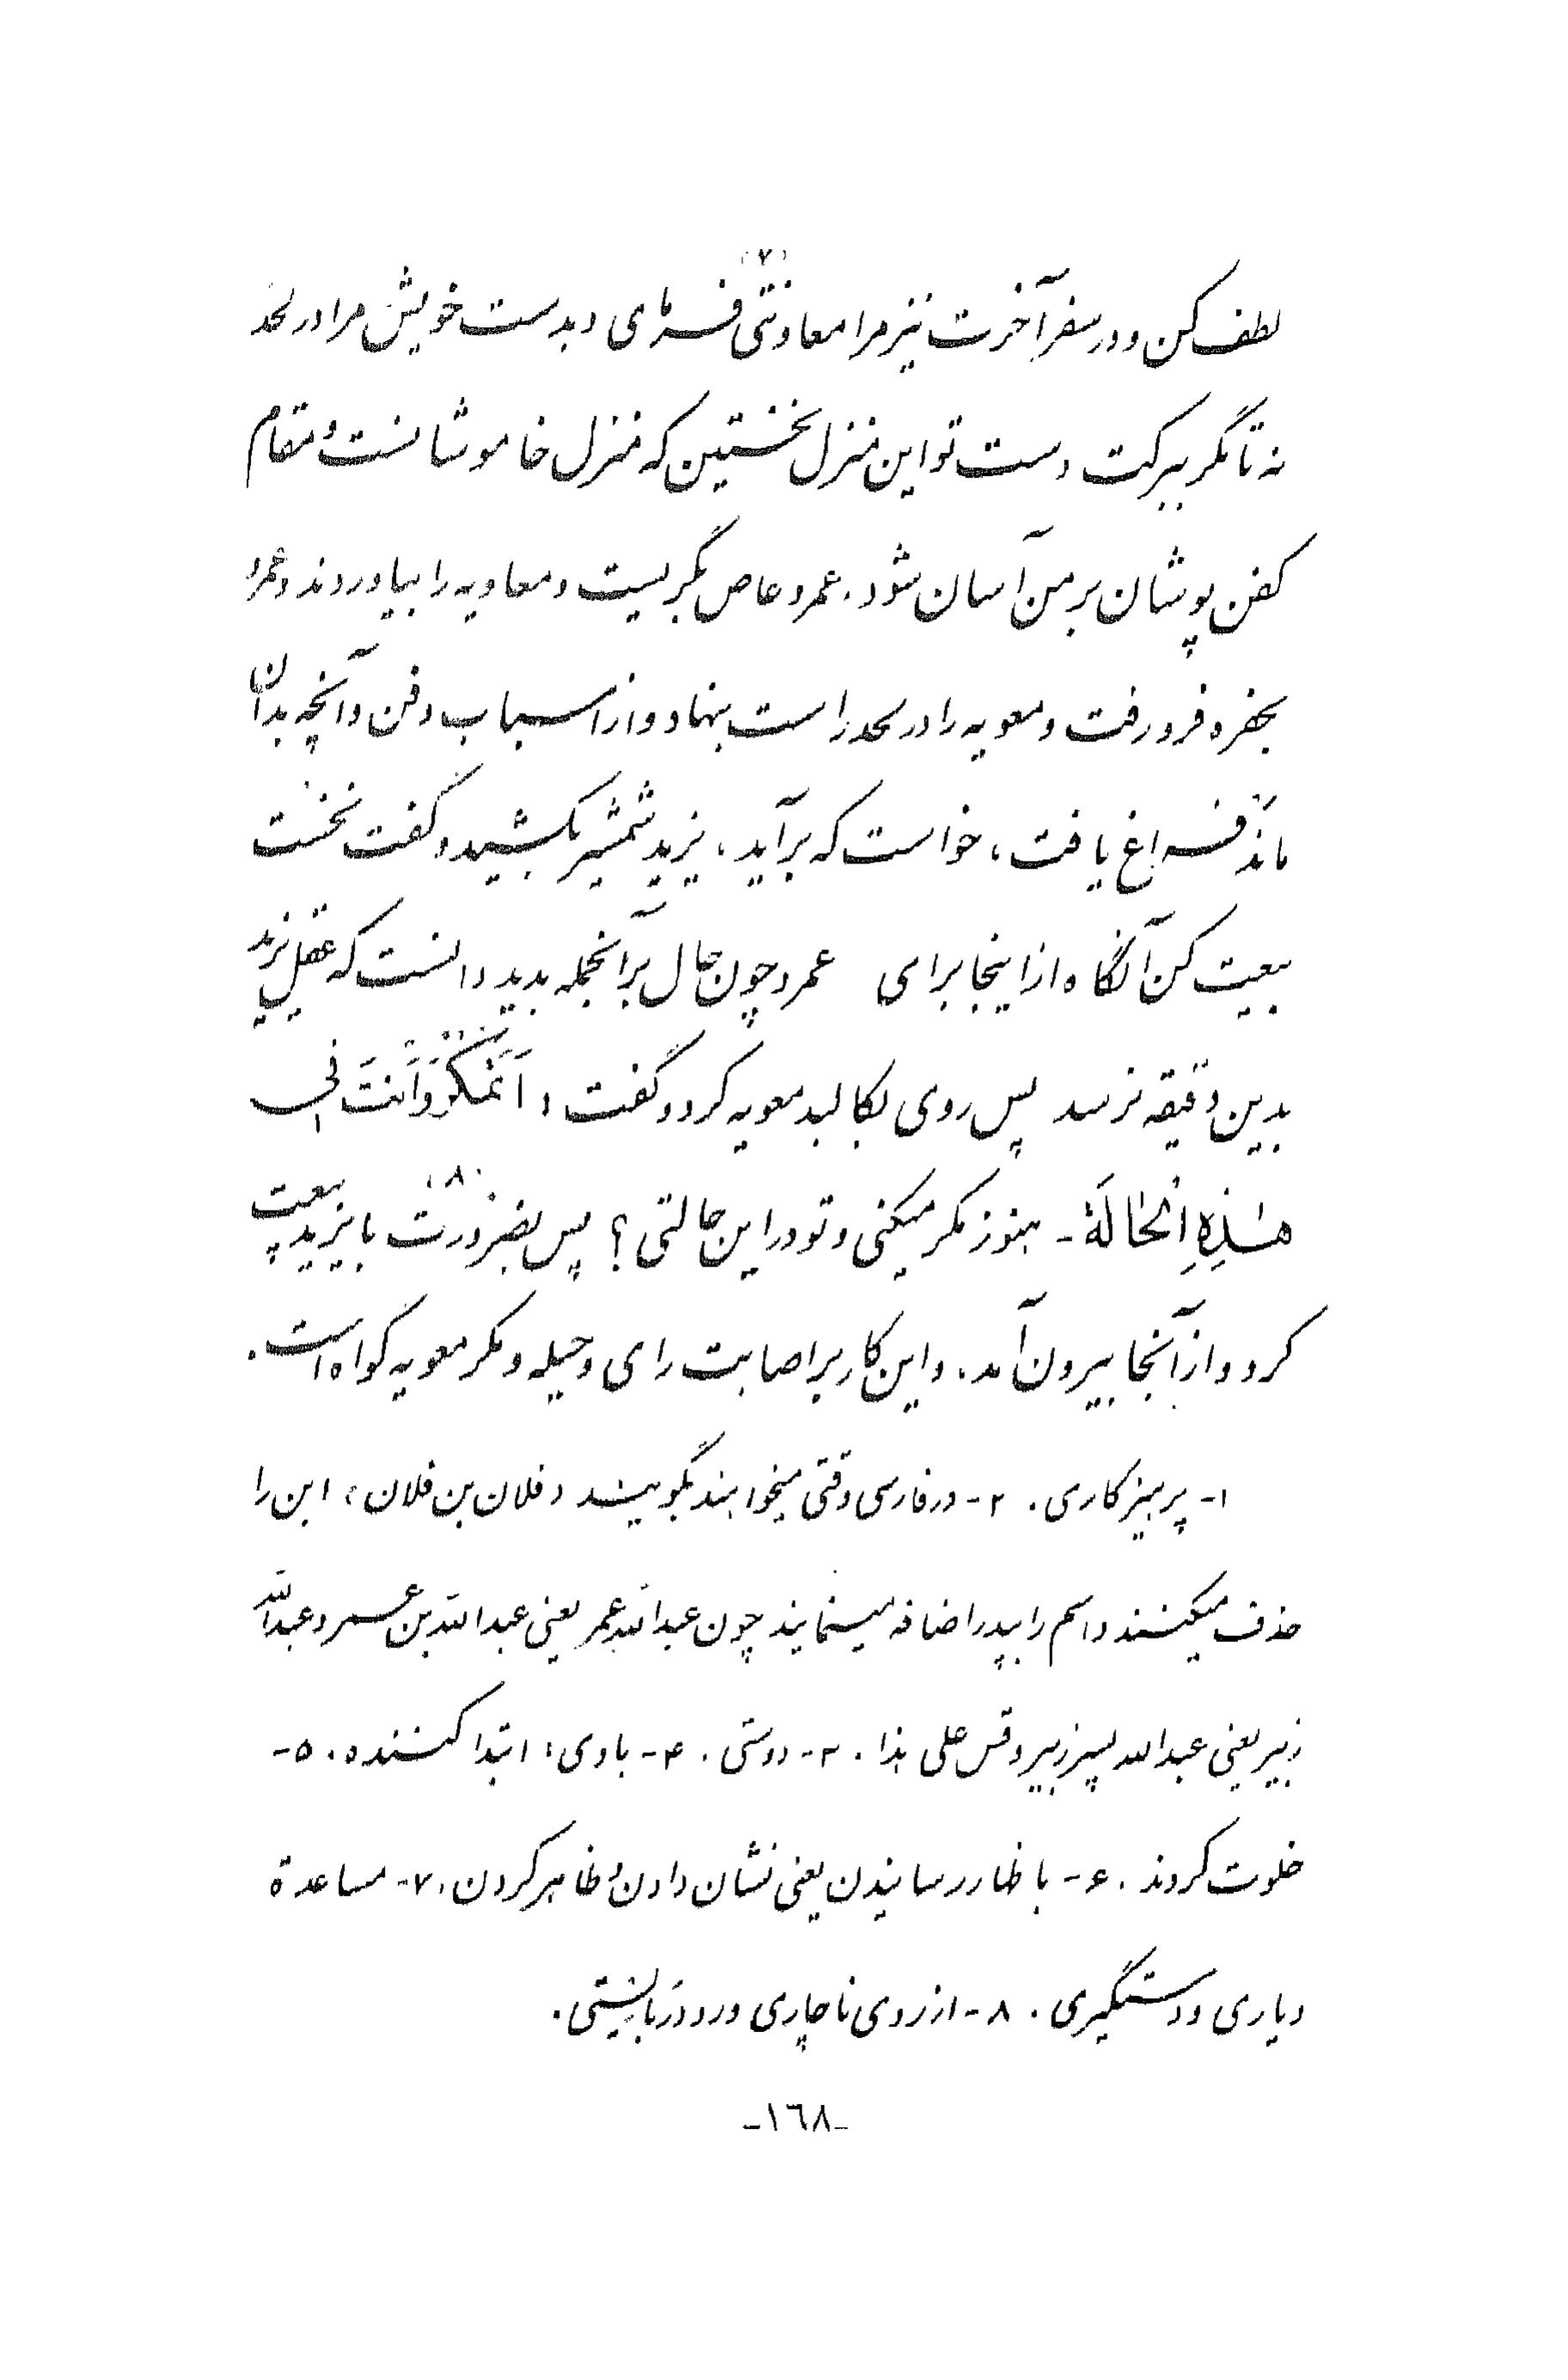 (۷)
لطف کن و در سفر آخرت نیز مرا معاونتی فرمای و بدست خویش مرا در لحد
نه تا مگر ببرکت دست تو این منزل نخستین که منزل خاموشانست و مقام
کفن پوشان بر من آسان شود. عمرو عاص بگریست و معاویه را بیاوردند و عمرو
بحفره فرو رفت و معویه را در لحد راست بنهاد و از اسباب دفن و آنچه بدان
ماند فراغ یافت، خواست که برآید، یزید شمشیر بکشید و گفت نخست
بیعت کن آنگاه از اینجا برای عمرو چون حال بر آنجمله بدید دانست که عقل یزید
بدین دقیقه نرسد پس روی بکالبد معویه کرد و گفت: اَتَمْکُرُ وَ اَنْتَ فی
هٰذِهِ الْحٰالَةِ - هنوز مکر میکنی و تو در این حالتی؟ پس بضرورت (۸) با یزید بیعت
کرد و از آنجا بیرون آمد. و این کار بر اصابت رای و حیله و مکر معویه گواه است.
۱- پرهیزکاری. ۲- در فارسی وقتی میخواهند بگویند «فلان بن فلان» ابن را
حذف میکنند و اسم را بپدر اضافه مینمایند چون عبدالله عمر یعنی عبدالله بن عمر و عبدالله
زبیر یعنی عبدالله پسر زبیر و قس علی هذا. ۳- دوستی. ۴- بادی: ابتدا کننده. ۵-
خلوت کردند. ۶- باظهار رسانیدن یعنی نشان دادن و ظاهر کردن. ۷- مساعدة
و یاری و دستگیری. ۸- از روی ناچاری و رودربایستی.
-١٦٨-